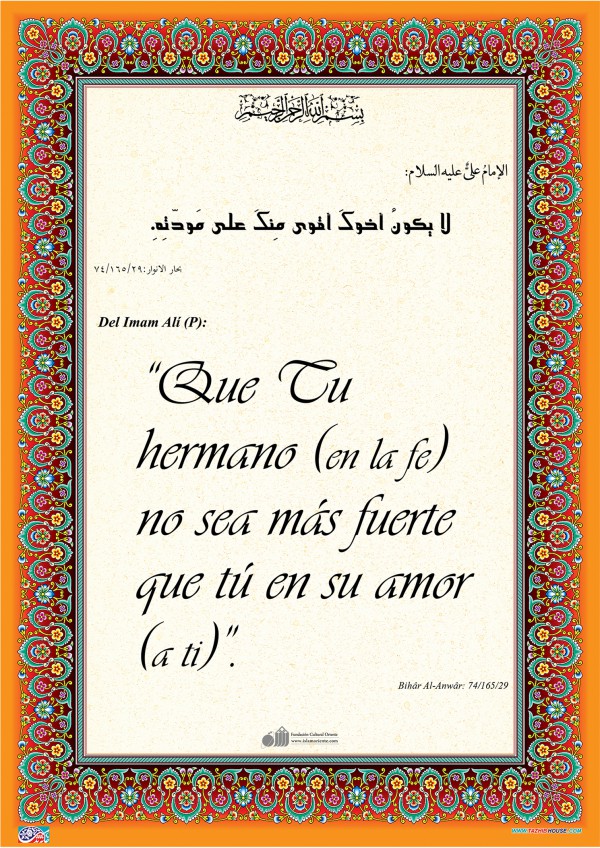 بِسْمِ اللهِ الرَّحْمٰنِ الرَّحِيمِ
الإمامُ عليٌّ عليه السلام:
لا يكونُ أخوكَ أقوى مِنكَ على مَودّتِهِ.
بحار الانوار:٧٤/١٦٥/٢٩
Del Imam Alí (P):
“Que Tu
hermano (en la fe)
no sea más fuerte
que tú en su amor
(a ti)”.
Bihâr Al-Anwâr: 74/165/29
Fundación Cultural Oriente
www.islamoriente.com
WWW.TAZHIBHOUSE.COM